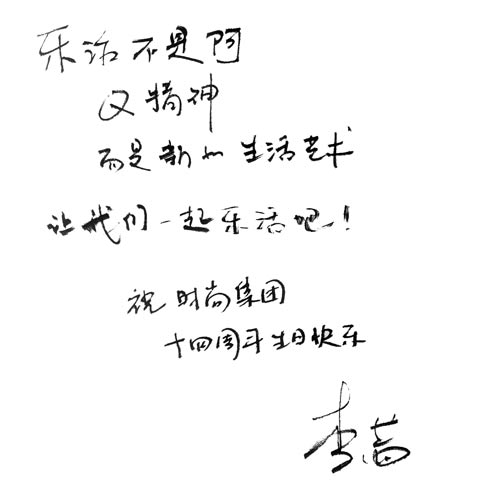 乐活不是阿
Q精神
而是新的生活艺术
让我们一起乐活吧！
祝时尚集团
十四周年生日快乐
李茜